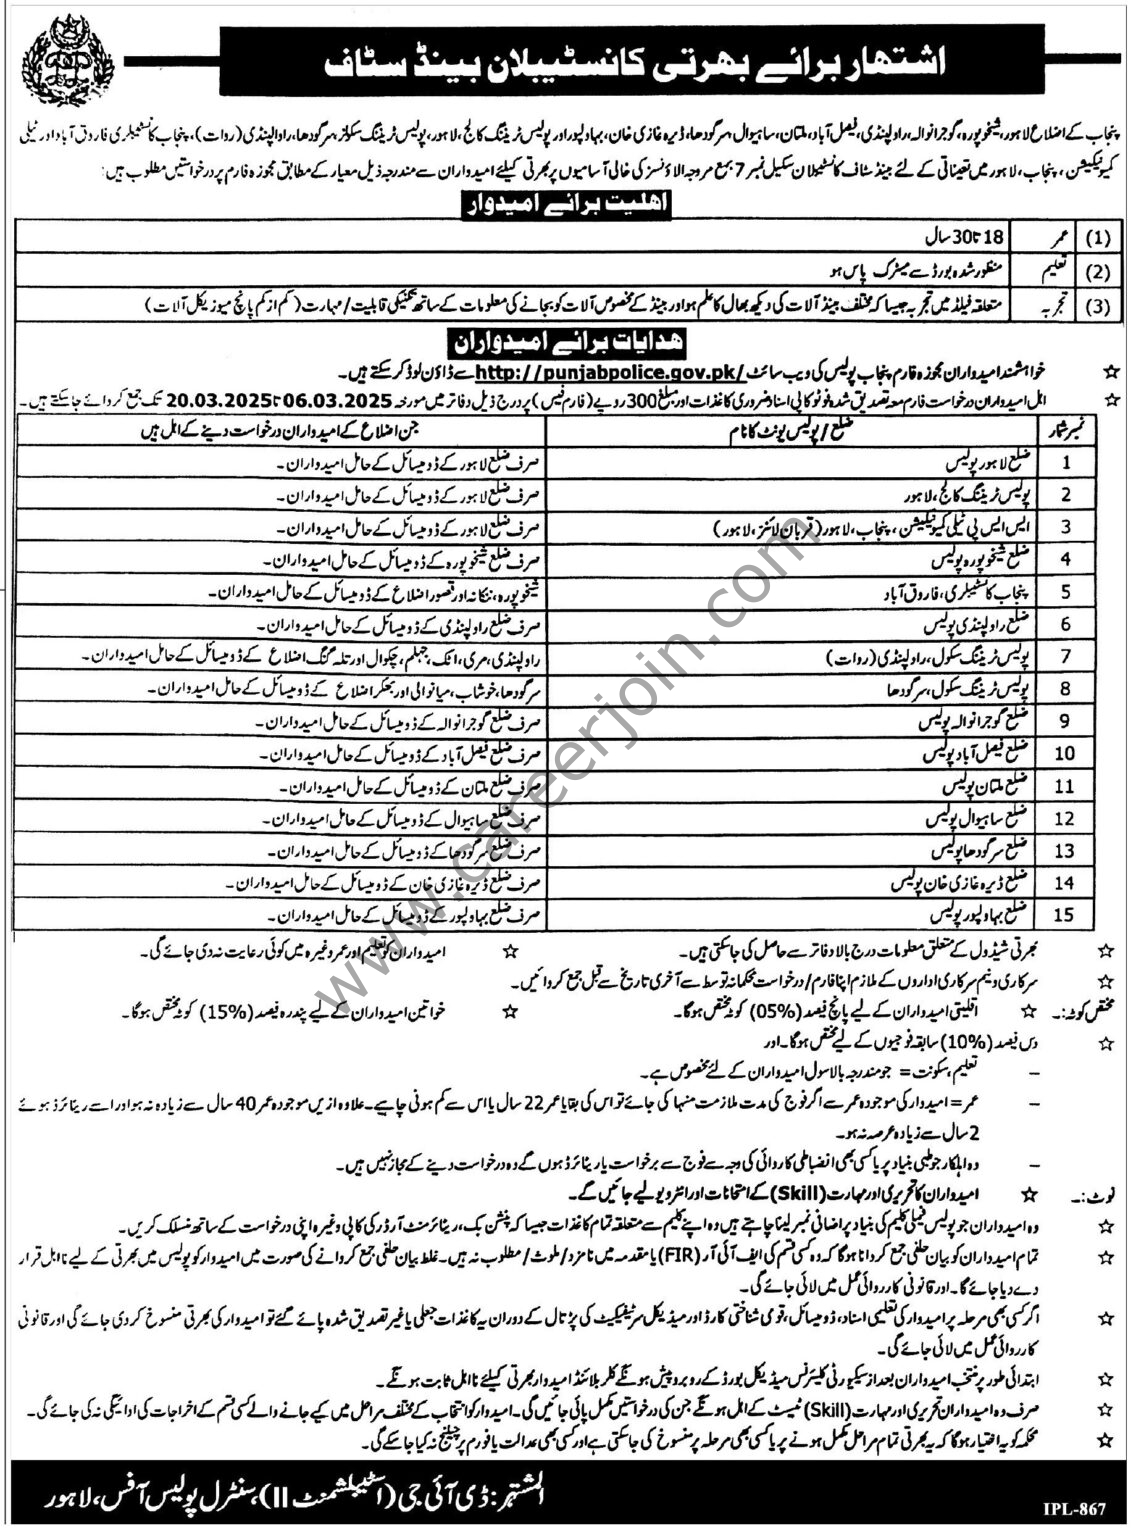 اشتہار برائے بھرتی کانسٹیبلان بینڈ سٹاف
پنجاب کے اضلاع لاہور، شیخوپورہ، گوجرانوالہ، راولپنڈی، فیصل آباد، ملتان، ساہیوال، سرگودھا، ڈیرہ غازی خان، بہاولپور اور پولیس ٹریننگ کالج، لاہور، پولیس ٹریننگ سکولز، سرگودھا، راولپنڈی (روات)، پنجاب کانسٹیبلری فاروق آباد اور ٹیلی
کمیونیکیشن، پنجاب، لاہور میں تعیناتی کے لئے بینڈ سٹاف کانسٹیبلان سکیل نمبر 7 بمع مروجہ الاؤنسز کی خالی آسامیوں پر بھرتی کیلئے امیدواران سے مندرجہ ذیل معیار کے مطابق مجوزہ فارم پر درخواستیں مطلوب ہیں:
اہلیت برائے امیدوار
(1) عمر 18 تا 30 سال
(2) تعلیم منظور شدہ بورڈ سے میٹرک پاس ہو
(3) تجربہ متعلقہ فیلڈ میں تجربہ جیسا کہ مختلف بینڈ آلات کی دیکھ بھال کا علم ہو اور بینڈ کے مخصوص آلات کو بجانے کی معلومات کے ساتھ تکنیکی قابلیت/مہارت (کم از کم پانچ میوزیکل آلات)
ہدایات برائے امیدواران
☆ خواہشمند امیدواران مجوزہ فارم پنجاب پولیس کی ویب سائٹ http://punjabpolice.gov.pk/ سے ڈاؤن لوڈ کر سکتے ہیں۔
☆ اہل امیدواران درخواست فارم معہ تصدیق شدہ فوٹو کاپی اسناد ضروری کاغذات اور مبلغ 300 روپے (فارم فیس) پر درج ذیل دفاتر میں مورخہ 06.03.2025 تا 20.03.2025 تک جمع کروائے جا سکتے ہیں۔
نمبر شمار ضلع/پولیس یونٹ کا نام جن اضلاع کے امیدواران درخواست دینے کے اہل ہیں
1 ضلع لاہور پولیس صرف ضلع لاہور کے ڈومیسائل کے حامل امیدواران۔
2 پولیس ٹریننگ کالج، لاہور صرف ضلع لاہور کے ڈومیسائل کے حامل امیدواران۔
3 ایس ایس پی ٹیلی کمیونیکیشن، پنجاب، لاہور (قربان لائنز، لاہور) صرف ضلع لاہور کے ڈومیسائل کے حامل امیدواران۔
4 ضلع شیخوپورہ پولیس صرف ضلع شیخوپورہ کے ڈومیسائل کے حامل امیدواران۔
5 پنجاب کانسٹیبلری، فاروق آباد شیخوپورہ، ننکانہ اور قصور اضلاع کے ڈومیسائل کے حامل امیدواران۔
6 ضلع راولپنڈی پولیس صرف ضلع راولپنڈی کے ڈومیسائل کے حامل امیدواران۔
7 پولیس ٹریننگ سکول، راولپنڈی (روات) راولپنڈی، مری، اٹک، جہلم، چکوال اور تلہ گنگ اضلاع کے ڈومیسائل کے حامل امیدواران۔
8 پولیس ٹریننگ سکول، سرگودھا سرگودھا، خوشاب، میانوالی اور بھکر اضلاع کے ڈومیسائل کے حامل امیدواران۔
9 ضلع گوجرانوالہ پولیس صرف ضلع گوجرانوالہ کے ڈومیسائل کے حامل امیدواران۔
10 ضلع فیصل آباد پولیس صرف ضلع فیصل آباد کے ڈومیسائل کے حامل امیدواران۔
11 ضلع ملتان پولیس صرف ضلع ملتان کے ڈومیسائل کے حامل امیدواران۔
12 ضلع ساہیوال پولیس صرف ضلع ساہیوال کے ڈومیسائل کے حامل امیدواران۔
13 ضلع سرگودھا پولیس صرف ضلع سرگودھا کے ڈومیسائل کے حامل امیدواران۔
14 ضلع ڈیرہ غازی خان پولیس صرف ضلع ڈیرہ غازی خان کے ڈومیسائل کے حامل امیدواران۔
15 ضلع بہاولپور پولیس صرف ضلع بہاولپور کے ڈومیسائل کے حامل امیدواران۔
☆ بھرتی شیڈول کے متعلق معلومات درج بالا دفاتر سے حاصل کی جا سکتی ہیں۔ ☆ امیدواران کو تعلیم اور عمر وغیرہ میں کوئی رعایت نہ دی جائے گی۔
☆ سرکاری و نیم سرکاری اداروں کے ملازم اپنا فارم/درخواست محکمانہ توسط سے آخری تاریخ سے قبل جمع کروائیں۔
مختص کوٹہ:۔ ☆ اقلیتی امیدواران کے لیے پانچ فیصد (05%) کوٹہ مختص ہوگا۔ ☆ خواتین امیدواران کے لیے پندرہ فیصد (15%) کوٹہ مختص ہوگا۔
☆ دس فیصد (10%) سابقہ فوجیوں کے لیے مختص ہوگا۔ اور
– تعلیم، سکونت = جو مندرجہ بالا سول امیدواران کے لئے مخصوص ہے۔
– عمر = امیدوار کی موجودہ عمر سے اگر فوج کی مدت ملازمت منہا کی جائے تو اس کی بقایا عمر 22 سال یا اس سے کم ہونی چاہیے۔ علاوہ ازیں موجودہ عمر 40 سال سے زیادہ نہ ہو اور اسے ریٹائرڈ ہوئے
2 سال سے زیادہ عرصہ نہ ہو۔
– وہ اہلکار جو طبی بنیاد پر یا کسی بھی انضباطی کاروائی کی وجہ سے فوج سے برخواست یا ریٹائرڈ ہوں گے وہ درخواست دینے کے مجاز نہیں ہیں۔
نوٹ:۔ ☆ امیدواران کا تحریری اور مہارت (Skill) کے امتحانات اور انٹرویو لیے جائیں گے۔
☆ وہ امیدواران جو پولیس فیملی کلیم کی بنیاد پر اضافی نمبر لینا چاہتے ہیں وہ اپنے کلیم سے متعلقہ تمام کاغذات جیسا کہ پنشن بک، ریٹائرمنٹ آرڈر کی کاپی وغیرہ اپنی درخواست کے ساتھ منسلک کریں۔
☆ تمام امیدواران کو بیان حلفی جمع کروانا ہوگا کہ وہ کسی قسم کی ایف آئی آر (FIR) یا مقدمہ میں نامزد/ملوث/مطلوب نہ ہیں۔ غلط بیان حلفی جمع کروانے کی صورت میں امیدوار کو پولیس میں بھرتی کے لیے نااہل قرار
دے دیا جائے گا۔ اور قانونی کارروائی عمل میں لائی جائے گی۔
☆ اگر کسی بھی مرحلہ پر امیدوار کی تعلیمی اسناد، ڈومیسائل، قومی شناختی کارڈ اور میڈیکل سرٹیفکیٹ کی پڑتال کے دوران یہ کاغذات جعلی یا غیر تصدیق شدہ پائے گئے تو امیدوار کی بھرتی منسوخ کر دی جائے گی اور قانونی
کارروائی عمل میں لائی جائے گی۔
☆ ابتدائی طور پر منتخب امیدواران بعد از سیکیورٹی کلیئرنس میڈیکل بورڈ کے روبرو پیش ہونگے کلر بلائنڈ امیدوار بھرتی کیلئے نااہل ثابت ہونگے۔
☆ صرف وہ امیدواران تحریری اور مہارت (Skill) ٹیسٹ کے اہل ہونگے جن کی درخواستیں مکمل پائی جائیں گی۔ امیدوار کو انتخاب کے مختلف مراحل میں کیے جانے والے کسی قسم کے اخراجات کی ادائیگی نہ کی جائے گی۔
☆ محکمہ کو یہ اختیار ہوگا کہ یہ بھرتی تمام مراحل مکمل ہونے پر یا کسی بھی مرحلہ پر منسوخ کی جا سکتی ہے اور کسی بھی عدالت یا فورم پر چیلنج نہ کیا جا سکے گی۔
المشتہر: ڈی آئی جی (اسٹیبلشمنٹ II)، سنٹرل پولیس آفس، لاہور
IPL-867
www.careerjoin.com